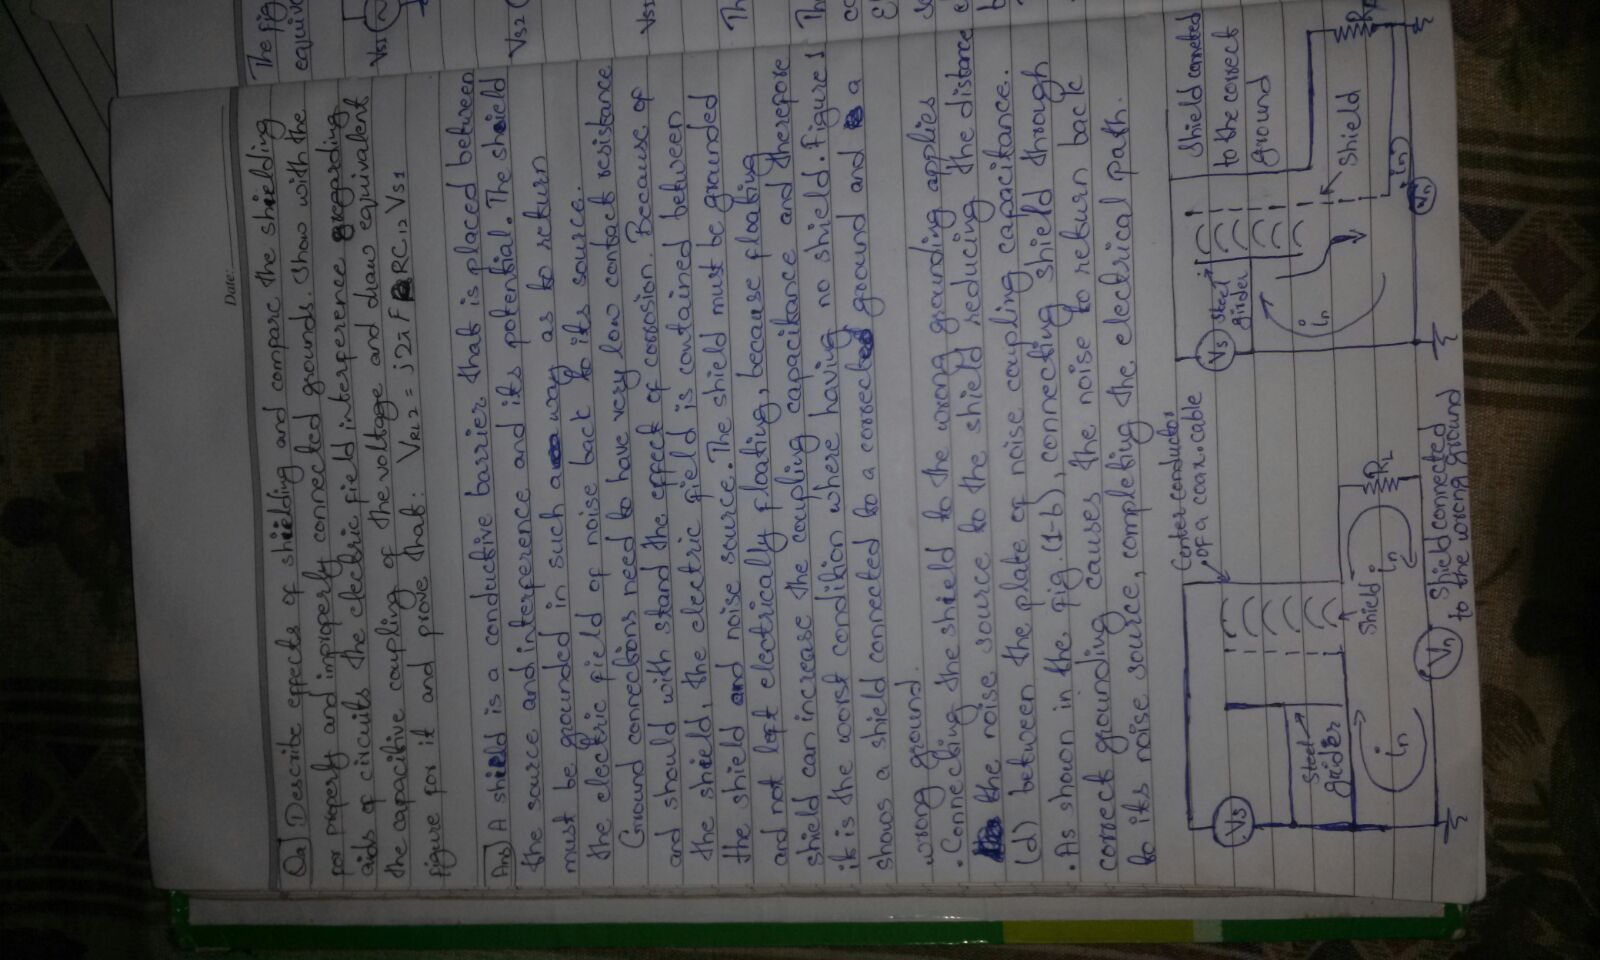 Date:
Qa] Describe effects of shielding and compare the shielding
for properly and improperly connected grounds. Show with the
aids of circuits the electric field interference regarding
the capacitive coupling of the voltage and draw equivalent
figure for it and prove that: VRL2 = j2πF RC12 VS1
Ans] A shield is a conductive barrier that is placed between
the source and interference and its potential. The sheild
must be grounded in such a way as to return
the electric field of noise back to its source.
Ground connections need to have very low contact resistance
and should with stand the effect of corrosion. Because of
the shield, the electric field is contained between
the shield and noise source. The shield must be grounded
and not left electrically floating, because floating
shield can increase the coupling capacitance and therefore
it is the worst condition where having no shield. Figure 1
shows a shield connected to a corrected ground and a
wrong ground.
. Connecting the shield to the wrong grounding applies
the noise source to the shield reducing the distance
(d) between the plate of noise coupling capacitance.
. As shown in the fig. (1-b), connecting shield through
correct grounding causes the noise to return back
to its noise source, completing the electrical path.
Center conductor
of a coax. cable
Vs
Steel
grider
Shield
in
in
RL
Vn
Shield connected
to the wrong ground
Vs
Steel
girder
Shield conneted
to the correct
ground
in
Shield
in
Vn
The fig
VS1
VS2